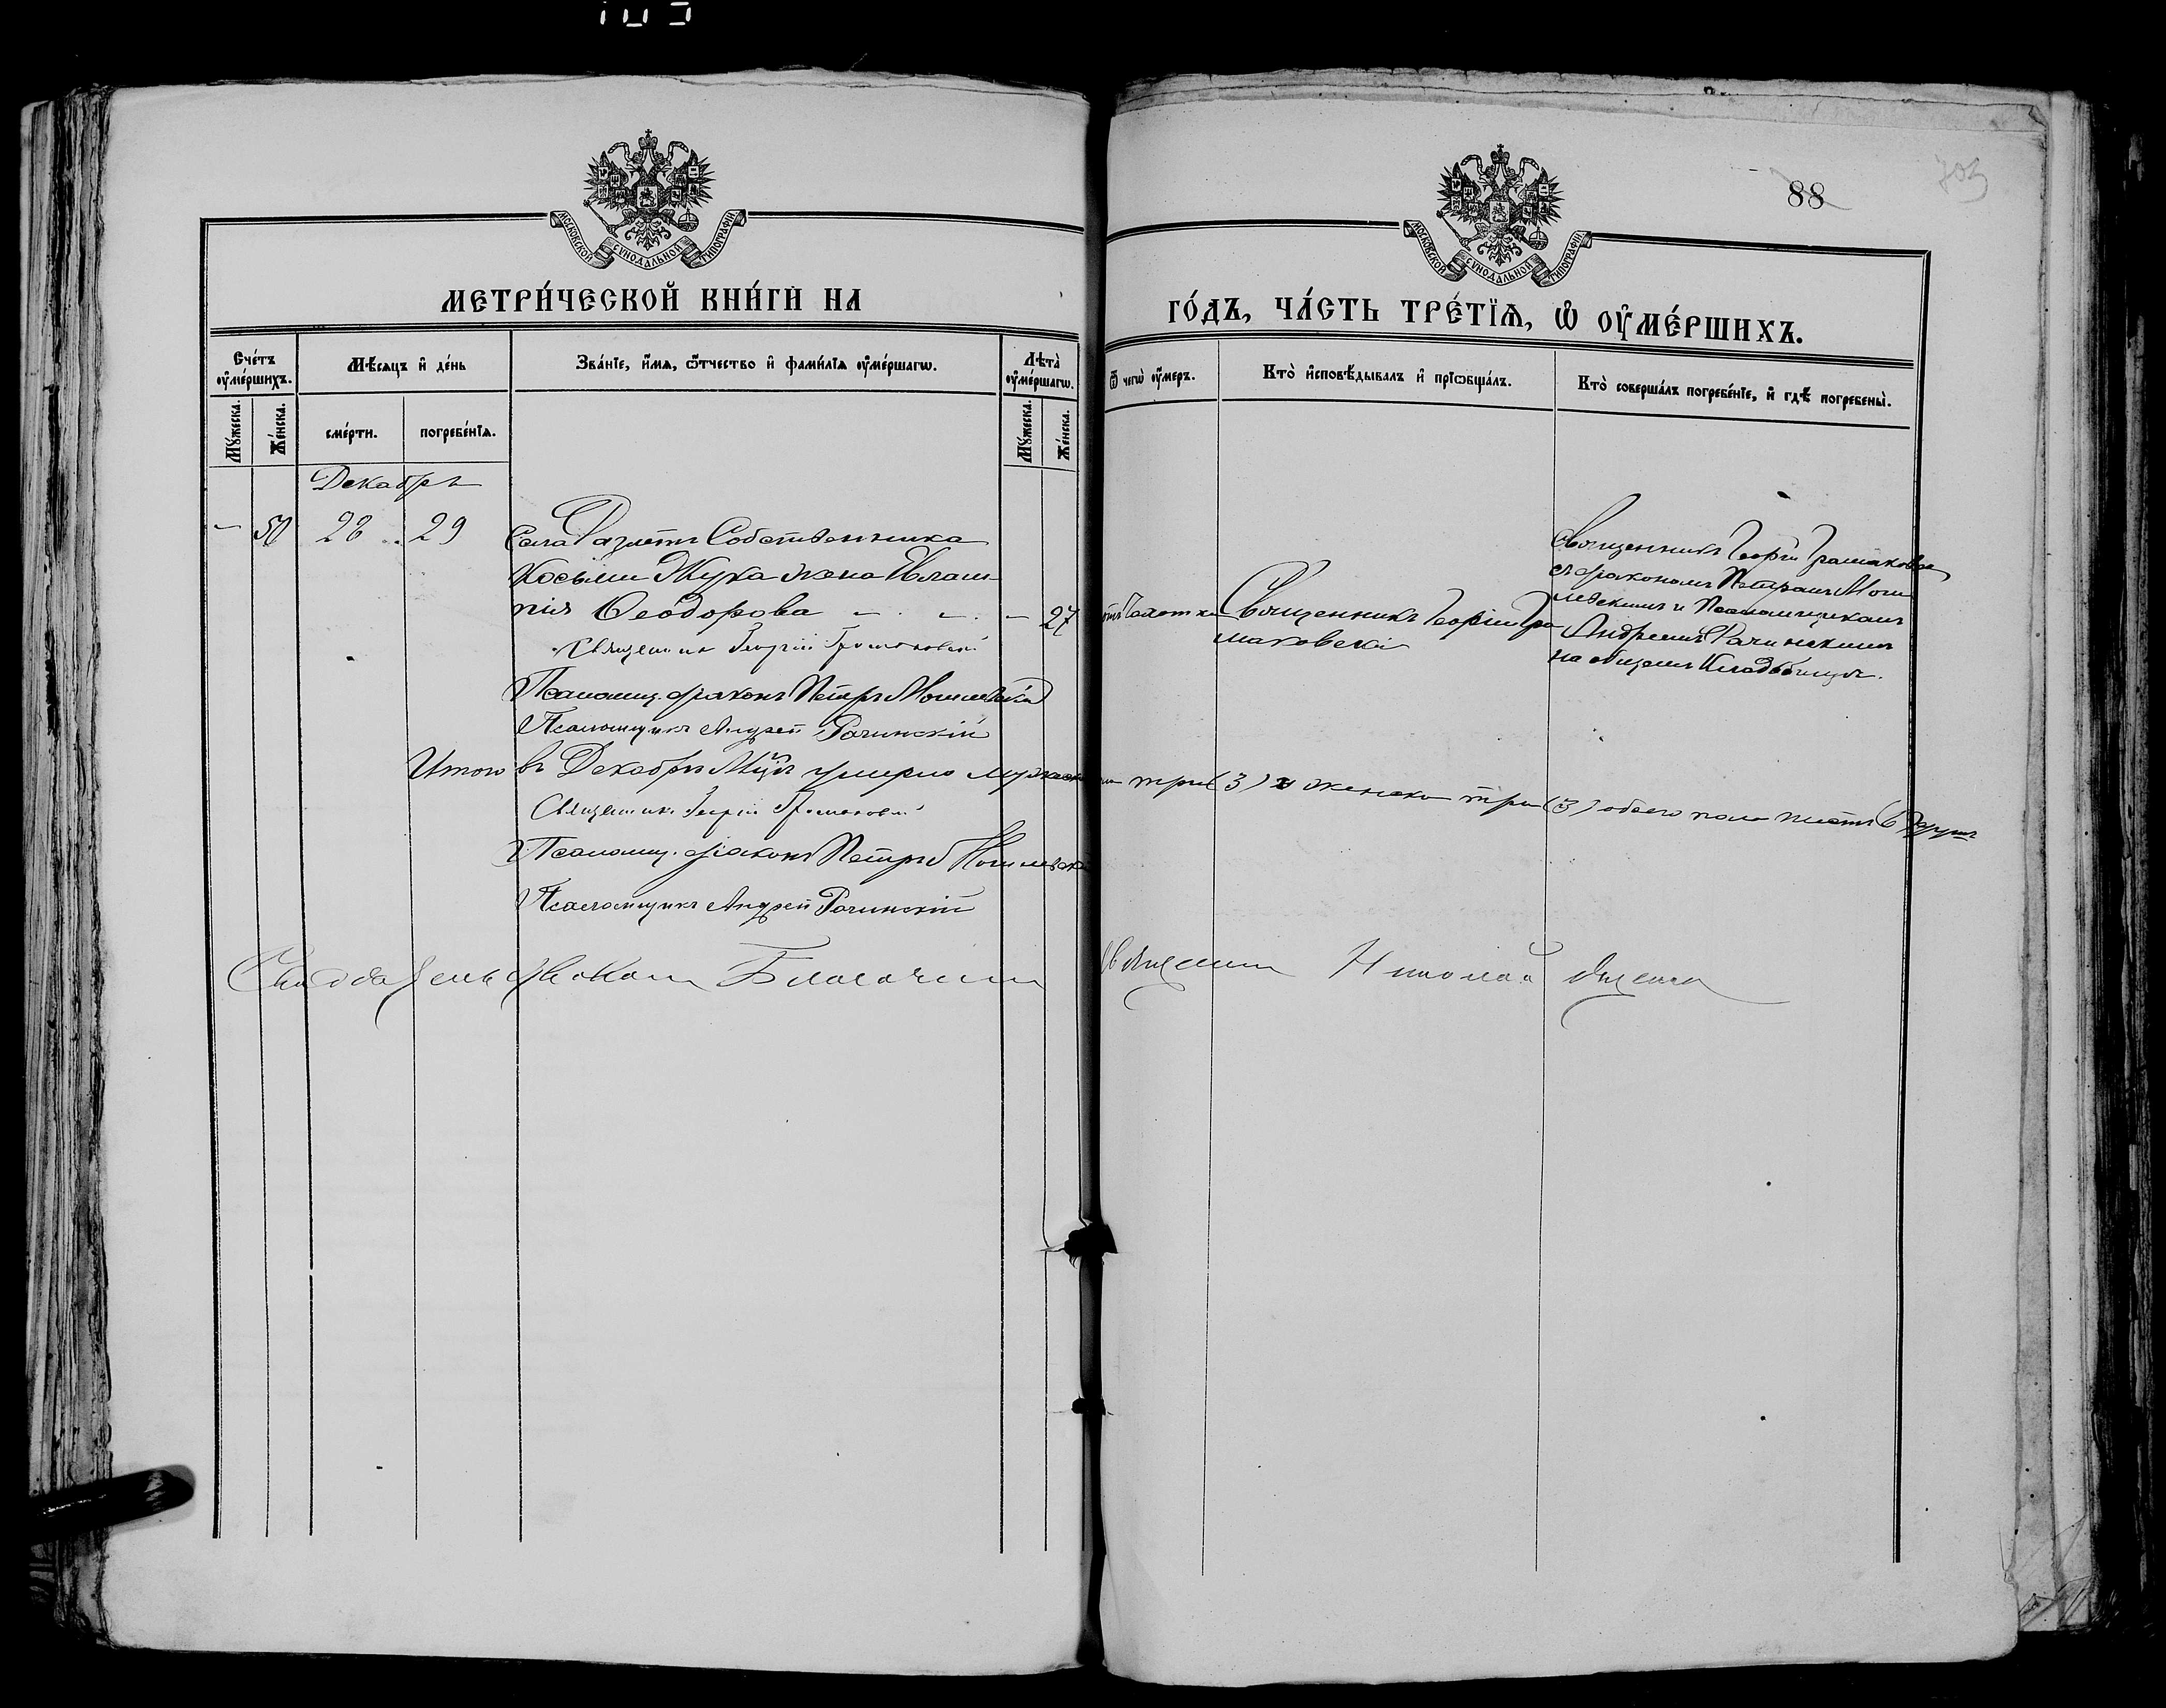 МОСКОВСКОЙ СѴНОДАЛЬНОЙ ТИПОГРАФІИ
МЕТРИ́ЧЕСКОЙ КНИ́ГИ НА
Сче́тъ ᲂу҆ме́ршихъ.
Мѣ́сяцъ и҆ де́нь
Зва́нїе, и҆́мя, ѻ҆́тчество и҆ фами́лїя ᲂу҆ме́ршагѡ.
Лѣ́та ᲂу҆ме́ршагѡ.
Мꙋ́жеска.
Же́нска.
сме́рти.
погребе́нїѧ.
Мꙋ́жеска.
Же́нска.
Декабрь
— 50 28 29 Села Собственника
Косьмы Жука жена Евлам
пія Ѳеодорова — 27
Священникъ Георгій Громаковскій
Псаломщ. діаконъ Петръ Могилевскій
Псаломщикъ Андрей Рачинскій
Итого въ Декабрѣ М-цѣ умерло мужеска
Священникъ Георгій Громаковскій
Псаломщ. діаконъ Петръ Могилевскій
Псаломщикъ Андрей Рачинскій
Благочин
88
703
МОСКОВСКОЙ СѴНОДАЛЬНОЙ ТИПОГРАФІИ
ГО́ДЪ, ЧА́СТЬ ТРЕ́ТЇѦ, Ѽ ОУ҆МЕ́РШИХЪ.
Ѿ чегѡ̀ ᲂу҆́меръ.
Кто̀ и҆сповѣ́дывалъ и҆ прїѻбща́лъ.
Кто̀ соверша́лъ погребе́нїе, и҆ гдѣ̀ погребены̀.
отъ чахотки
Священникъ Георгій Гро
маковскій
Священникъ Георгій Громаковскій
съ діакономъ Петромъ Моги
левскимъ и Псаломщикомъ
Андреемъ Рачинскимъ
на общемъ Кладбищѣ.
три (3) и женска три (3) обоего пола шесть (6) душъ
Священникъ Николай